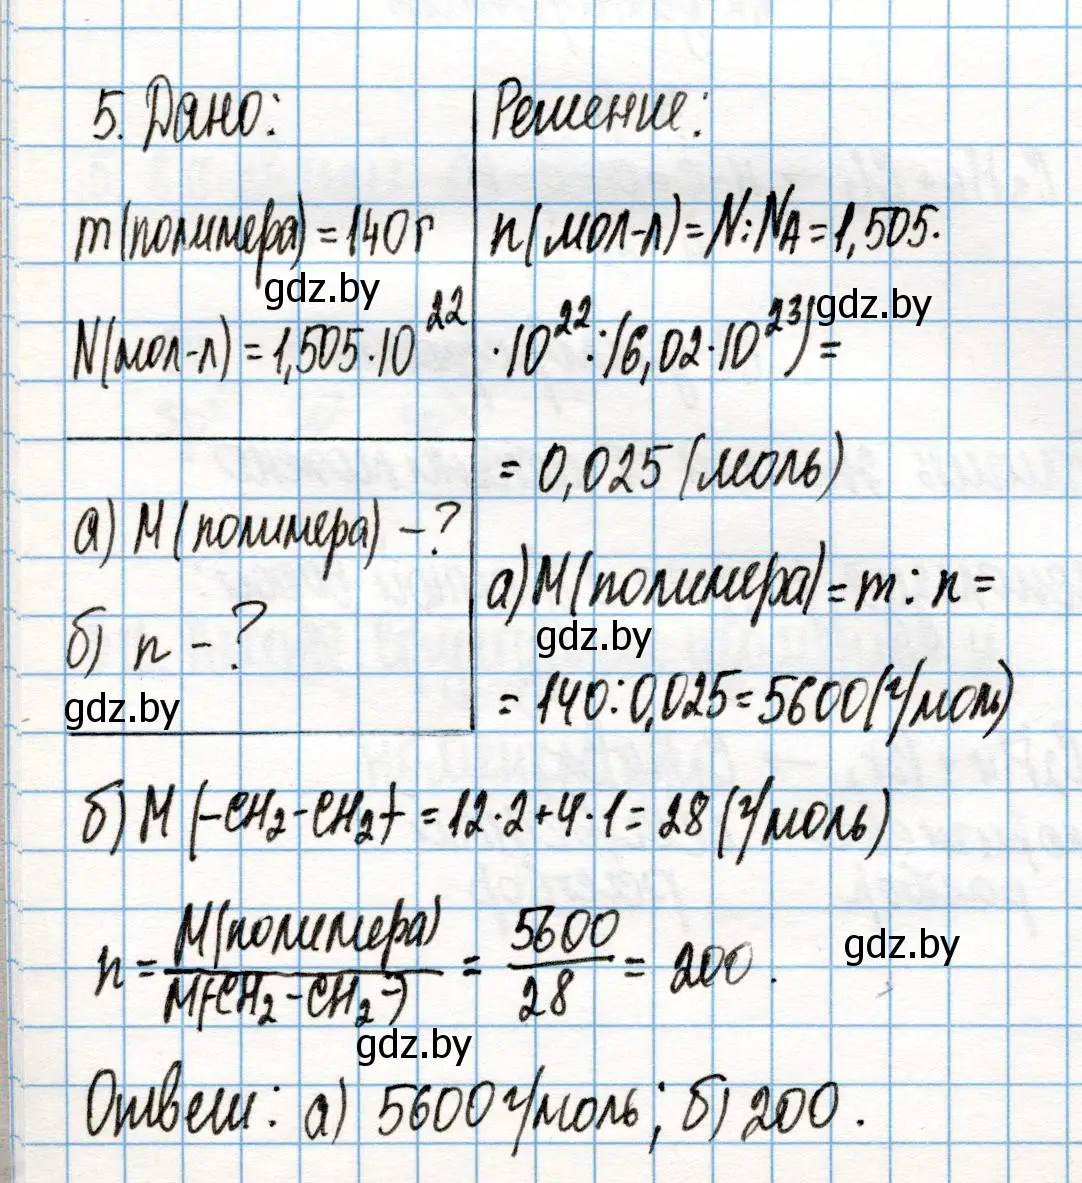 5. Дано:
m(полимера) = 140 г
N(мол-л) = 1,505·10²²
а) M(полимера) - ?
б) n - ?
Решение:
n(мол-л) = N:NA = 1,505·
·10²²:(6,02·10²³) =
= 0,025 (моль)
а) M(полимера) = m : n =
= 140:0,025 = 5600 (г/моль)
б) M (-CH₂-CH₂-) = 12·2+4·1 = 28 (г/моль)
n = M(полимера) / M(-CH₂-CH₂-) = 5600 / 28 = 200.
Ответ: а) 5600 г/моль; б) 200.
gdz.by
gdz.by
gdz.by
gdz.by
gdz.by
gdz.by